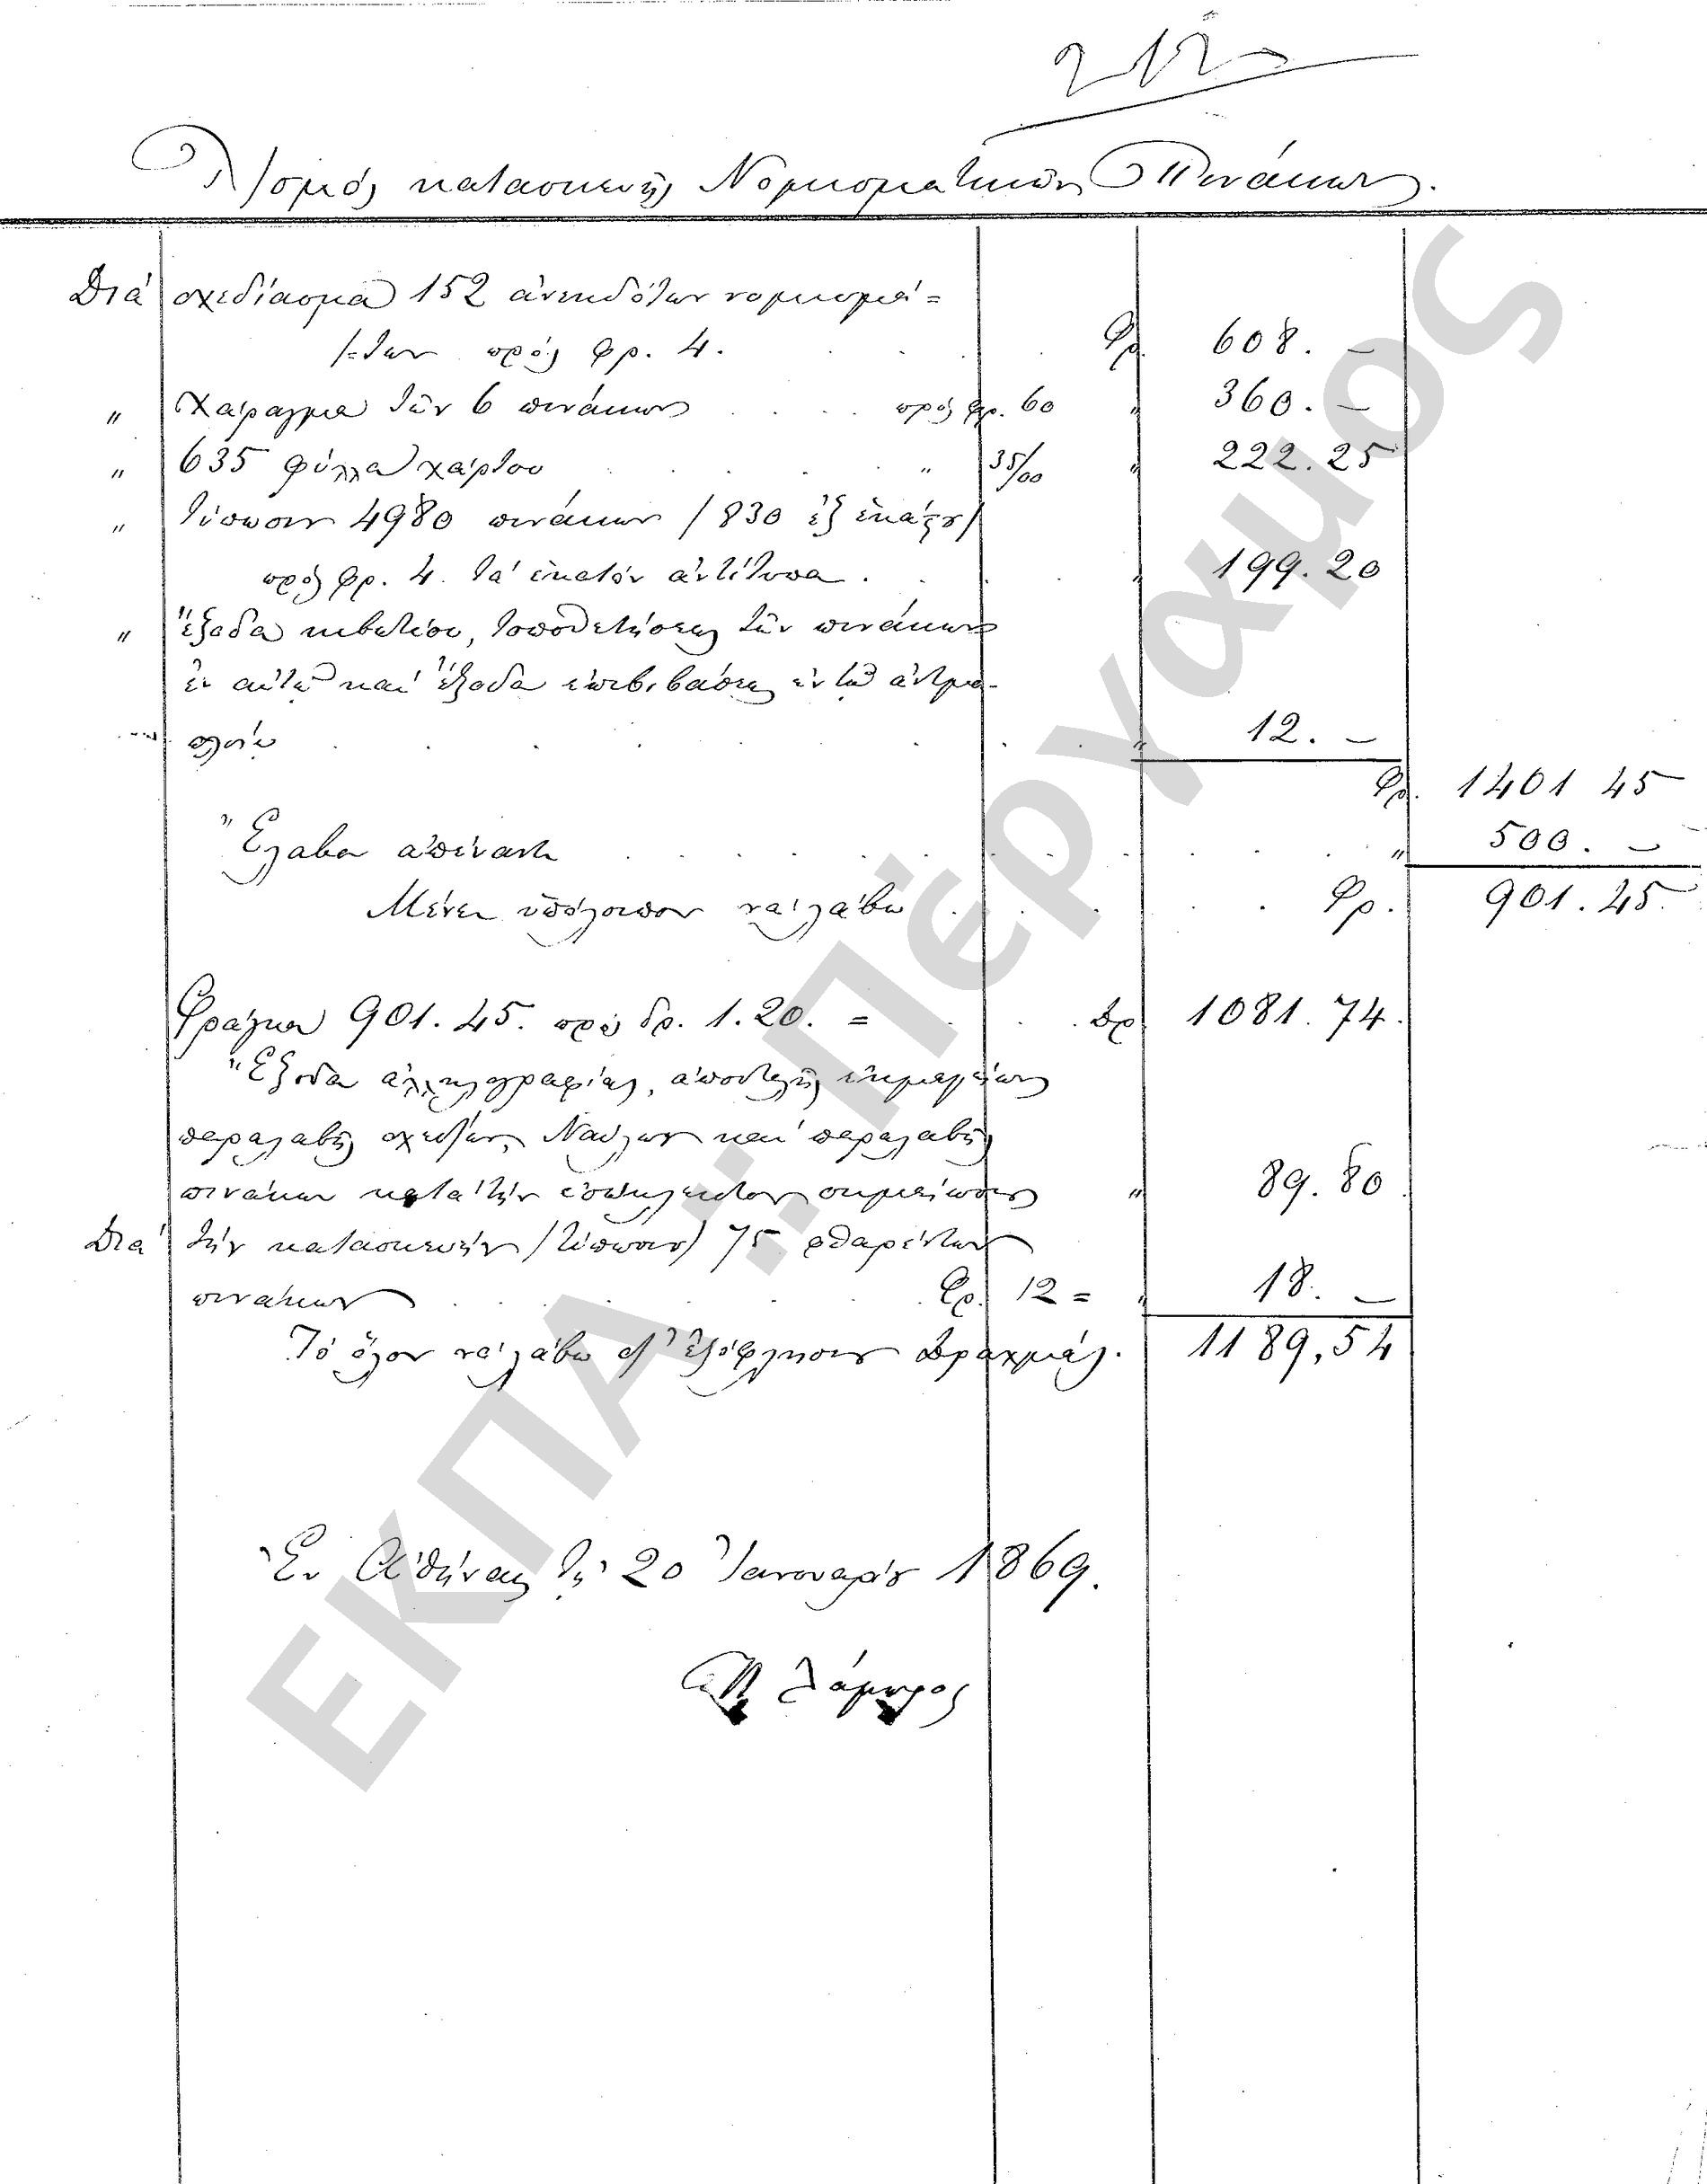 212
Λ/σμός κατασκευῆς Νομισματικῶν Πινάκων.
Διά σχεδίασμα 152 ἀνεκδότων νομισμά=
/=των πρός φρ. 4. Φρ 608. —
„ Χάραγμα τῶν 6 πινάκων πρός φρ. 60 „ 360. —
„ 635 φύλλα χάρτου „ 35/00 „ 222.25
„ τύπωσιν 4980 πινάκων /830 ἐξ ἑκάστου/
πρός φρ. 4. τά ἑκατόν ἀντίτυπα. „ 199.20
„ ἔξοδα κιβωτίου, τοποθετήσεως τῶν πινάκων
ἐν αὐτῷ καί ἔξοδα ἐπιβιβάσεως ἐν τῷ ἀτμο-
πλοίῳ „ 12. —
Φρ. 1401 45
Ἔλαβα ἀπέναντι „ 500. —
Μένει ὑπόλοιπον νά λάβω Φρ. 901.45
Φράγκα 901.45. πρός δρ. 1.20. = Δρ 1081.74.
Ἔξοδα ἀλληλογραφίας, ἀποστολῆς ἐκμαγείων
παραλαβῆς σχεδίων, Ναύλων καί παραλαβῆς
πινάκων κατά τήν σημείωσιν „ 89.80
Διά τήν κατασκευήν /τύπωσιν/ 75 φθαρέντων
πινάκων Φρ. 12 = „ 18. —
Τό ὅλον νά λάβω δι' ἐξόφλησιν Δραχμάς. 1189,54
Ἐν Ἀθήναις τῇ 20 Ἰανουαρίου 1869.
Π Λάμπρος
ΕΚΠΑ :: Πέργαμος